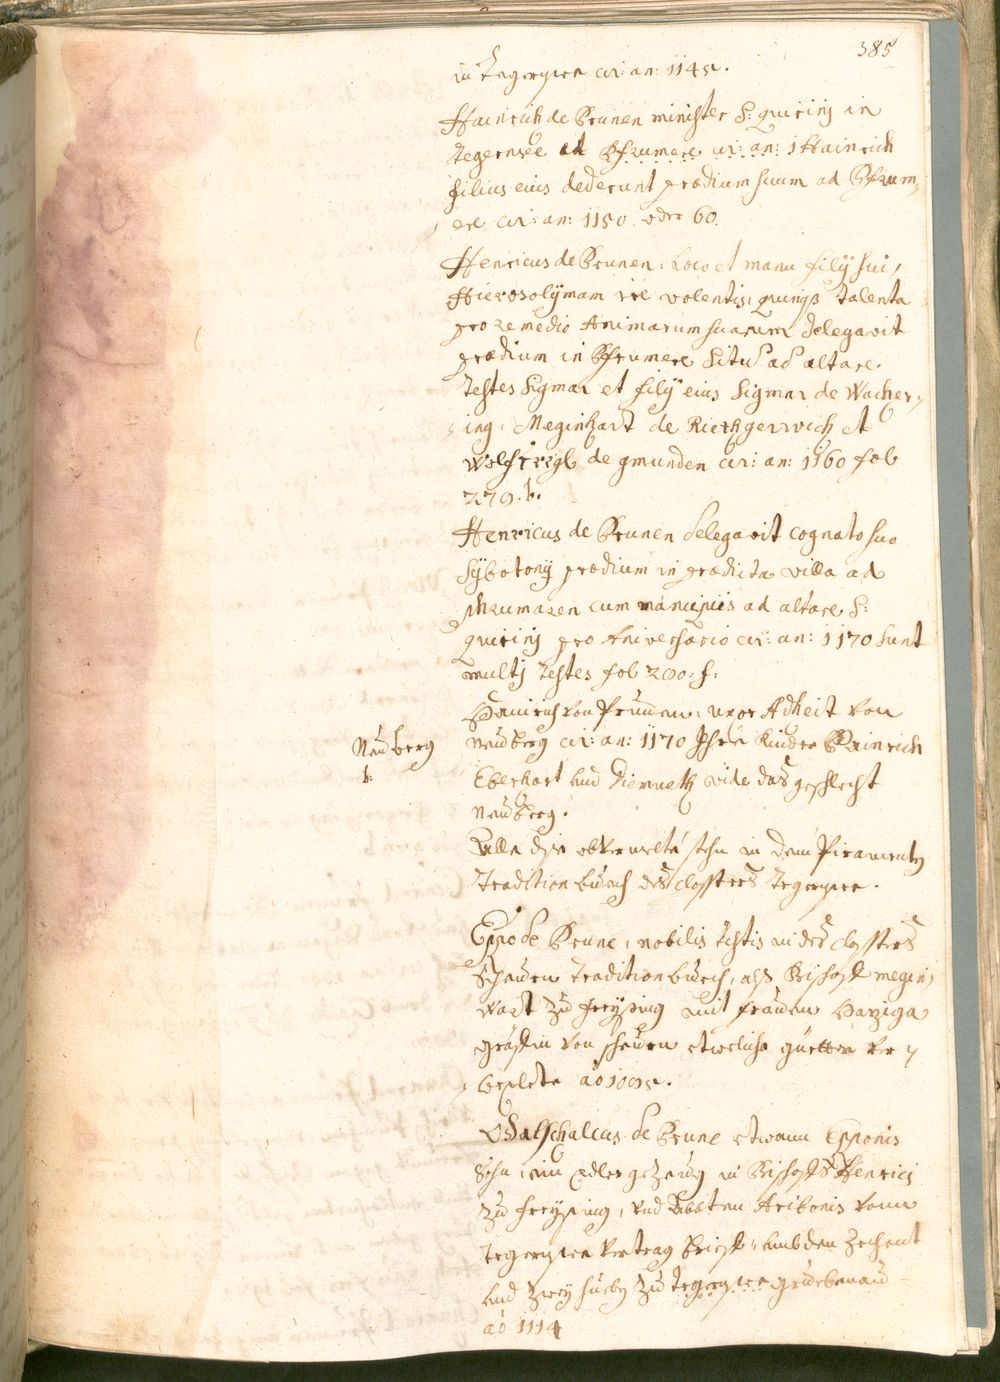 385
in Tegernsee cir: an: 1145.
Hainrich de Brunen minister S: quirinj in
Tegernsee ad Pfrumere cir: an: 1 Hainrich
filius eius dederunt prædium suum ad Pfrum,
, ere cir: an: 1150. oder 60.
Henricus de Brunen: Loco et manu filij sui,
Hierosolÿmam ire volentis, quinqs talenta
pro remedio Animarum suarum delegavit
prædium in Pfrumere situ ad altare.
Testes Sigmar et filÿ eius Sigmar de Wacher,,
,, ing, Meginhart de Riethgerwich et
de gmunden cir: an: 1160 fol
270. b.
Henricus de Brunen delegavit cognato suo
Sÿbotonj prædium in prædicta villa ad
phrumaren cum mancipiis ad altare S:
quirinj pro Aniversario cir: an: 1170 sunt
multj Testes fol 200. f.
Hainrich von Prunen, uxor Adheit von
Neuberg cir: an: 1170 Ihre Kinder Hainrich
Neuberg
Eberhart und Diemueth vide das geschlecht
Neuberg.
Alle dise stehn in dem
Tradition buech des closters Tegernsee.
Eppo de Brune, nobilis testis in des closters
Scheurn Tradition buech, alß Bischoff megin,
wart zu Freÿsing mit frauen Haziga
gräffin von scheurn etweliche güetter ver,
,
Odalschalcus de Brune etwann Epponis
Sohn, ein edler gezeug in Bischoffs Henrici
zu Freÿsing, und Abbten Aribonis vonn
Tegernsee vertrag brieff, umb den Zechent
und zweÿ hueb zu Tegernsee
ao 1114